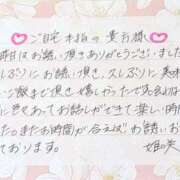 ご自宅 本指の貴方様
昨日はお誘い頂きありがとうございました
久しぶりにお誘い頂き、久しぶりに美味
ご飯まで頂き嬉しかったで
に 会えてお話しができて楽しい時
た。またお時間が合えばお誘いお
ております。
姫咲